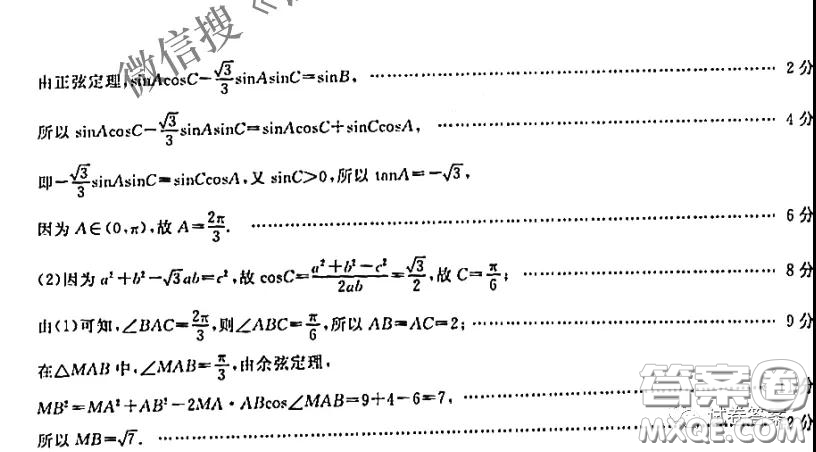 微信搜《
由正弦定理,sinAcosC-\frac{\sqrt{3}}{3}sinAsinC=sinB, …… 2分
所以 sinAcosC-\frac{\sqrt{3}}{3}sinAsinC=sinAcosC+sinCcosA, …… 4分
即-\frac{\sqrt{3}}{3}sinAsinC=sinCcosA,又 sinC>0,所以 tanA=-\sqrt{3},
因为 A∈(0,π),故 A=\frac{2π}{3}. …… 6分
(2)因为 a²+b²-\sqrt{3}ab=c²,故 cosC=\frac{a²+b²-c²}{2ab}=\frac{\sqrt{3}}{2},故 C=\frac{π}{6}; …… 8分
由(1)可知,∠BAC=\frac{2π}{3},则∠ABC=\frac{π}{6},所以 AB=AC=2; …… 9分
在△MAB 中,∠MAB=\frac{π}{3},由余弦定理,
MB²=MA²+AB²-2MA·ABcos∠MAB=9+4-6=7, …… 分
所以 MB=\sqrt{7}. …… 2分
答案卷
试卷答案
MXQE.COM